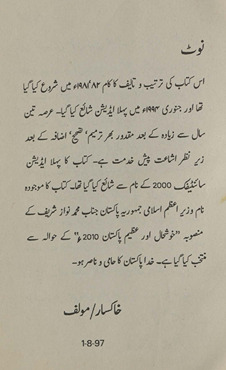 نوٹ
اس کتاب کی ترتیب و تالیف کا کام ۸۲ء/۱۹۸۱ میں شروع کیا گیا
تھا اور جنوری ۱۹۹۴ء میں پہلا ایڈیشن شائع کیا گیا۔ عرصہ تین
سال سے زیادہ کے بعد مقدور بھر ترمیم، تصحیح، اضافہ کے بعد
زیر نظر اشاعت پیش خدمت ہے۔ کتاب کا پہلا ایڈیشن
سائنٹیفک 2000 کے نام سے شائع کیا گیا تھا۔ کتاب کا موجودہ
نام وزیر اعظم اسلامی جمہوریہ پاکستان جناب محمد نواز شریف کے
منصوبہ "خوشحال اور عظیم پاکستان 2010ء" کے حوالہ سے
منتخب کیا گیا ہے۔ خدا پاکستان کا حامی و ناصر ہو۔
خاکسار/مولف
1-8-97